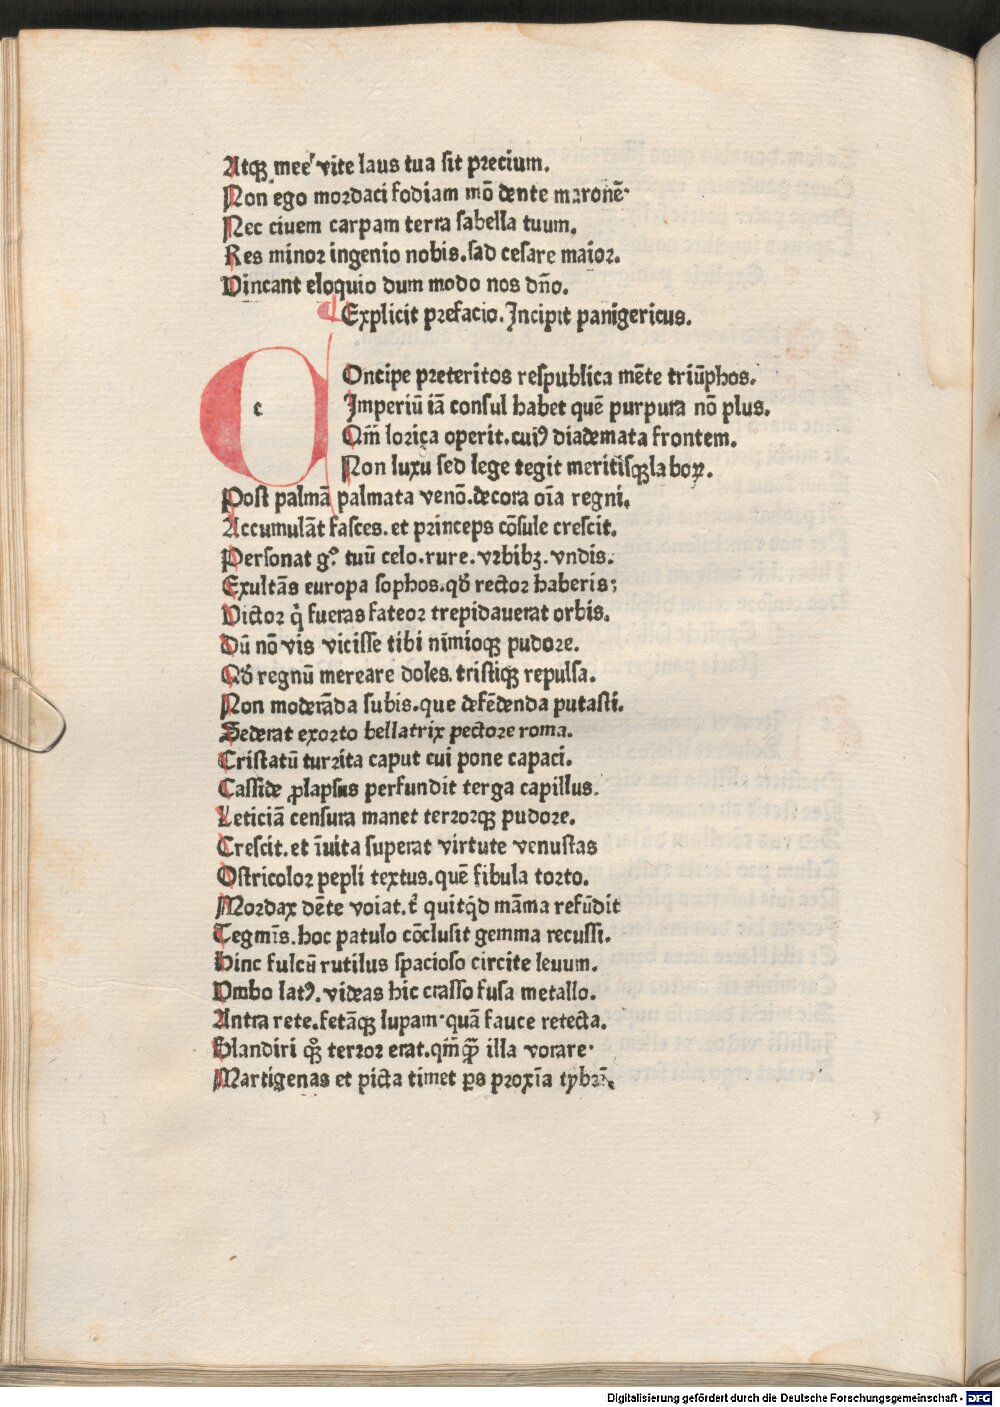 Atqꝫ meeˀ vite laus tua sit precium.
Non ego mordaci fodiam mō dente maronē·
Nec ciuem carpam terra sabella tuum.
Res minor ingenio nobis. sad cesare maior.
Vincant eloquio dum modo nos dn̄o.
¶ Explicit prefacio. Incipit panigericus.
c Oncipe preteritos respublica mēte triūphos.
Imperiū iā consul habet quē purpura nō plus.
Qm̄ lorica operit. cuiꝰ diademata frontem.
Non luxu sed lege tegit meritisqꝫ laboꝝ.
Post palmā palmata venō. decora oīa regni.
Accumulāt fasces. et princeps cōsule crescit.
Personat gº tuū celo. rure. vrbibꝫ. vndis.
Exultās europa sophos. qđ rector haberis;
Victor q̄ fueras fateor trepidauerat orbis.
Dū nō vis vicisse tibi nimioqꝫ pudore.
Qđ regnū mereare doles. tristiqꝫ repulsa.
Non moderāda subis. que defēdenda putasti.
Sederat exorto bellatrix pectore roma.
Cristatū turrita caput cui pone capaci.
Casside ꝓlapsus perfundit terga capillus.
Leticiā censura manet terrorqꝫ pudore.
Crescit. et īuita superat virtute venustas
Ostricolor pepli textus. quē fibula torto.
Mordax dēte voiat. t̄ quitqd māma refūdit
Tegmīs. hoc patulo cōclusit gemma recussi.
Hinc fulcū rutilus spacioso circite leuum.
Vmbo latꝰ. videas hic crasso fusa metallo.
Antra rete. fetāqꝫ lupam· quā fauce retecta.
Blandiri qꝫ terror erat. qm̄qꝫ illa vorare·
Martigenas et picta timet ꝑs proxīa tybrī.
Digitalisierung gefördert durch die Deutsche Forschungsgemeinschaft - DFG